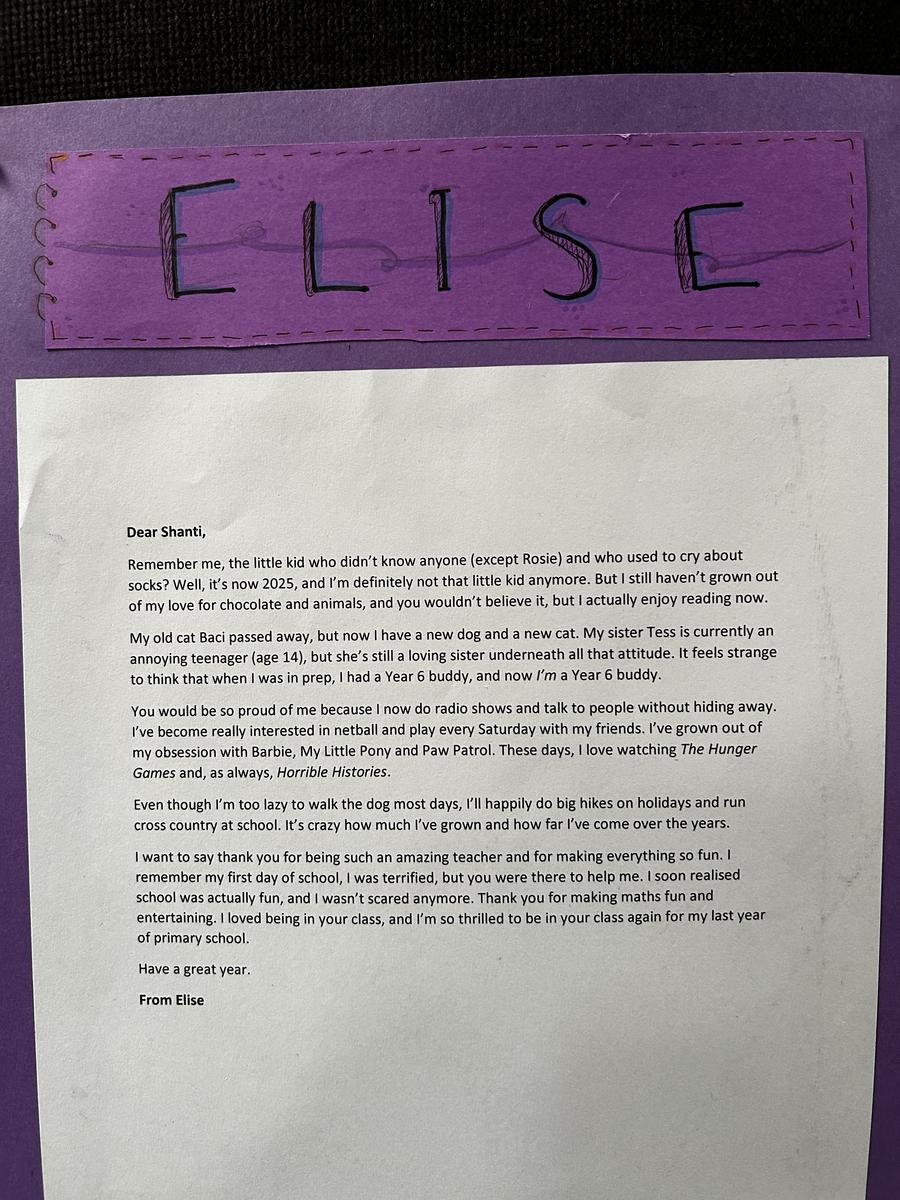 ELISE
Dear Shanti,
Remember me, the little kid who didn't know anyone (except Rosie) and who used to cry about
socks? Well, it's now 2025, and I'm definitely not that little kid anymore. But I still haven't grown out
of my love for chocolate and animals, and you wouldn't believe it, but I actually enjoy reading now.
My old cat Baci passed away, but now I have a new dog and a new cat. My sister Tess is currently an
annoying teenager (age 14), but she's still a loving sister underneath all that attitude. It feels strange
to think that when I was in prep, I had a Year 6 buddy, and now I'm a Year 6 buddy.
You would be so proud of me because I now do radio shows and talk to people without hiding away.
I've become really interested in netball and play every Saturday with my friends. I've grown out of
my obsession with Barbie, My Little Pony and Paw Patrol. These days, I love watching The Hunger
Games and, as always, Horrible Histories.
Even though I'm too lazy to walk the dog most days, I'll happily do big hikes on holidays and run
cross country at school. It's crazy how much I've grown and how far I've come over the years.
I want to say thank you for being such an amazing teacher and for making everything so fun. I
remember my first day of school, I was terrified, but you were there to help me. I soon realised
school was actually fun, and I wasn't scared anymore. Thank you for making maths fun and
entertaining. I loved being in your class, and I'm so thrilled to be in your class again for my last year
of primary school.
Have a great year.
From Elise